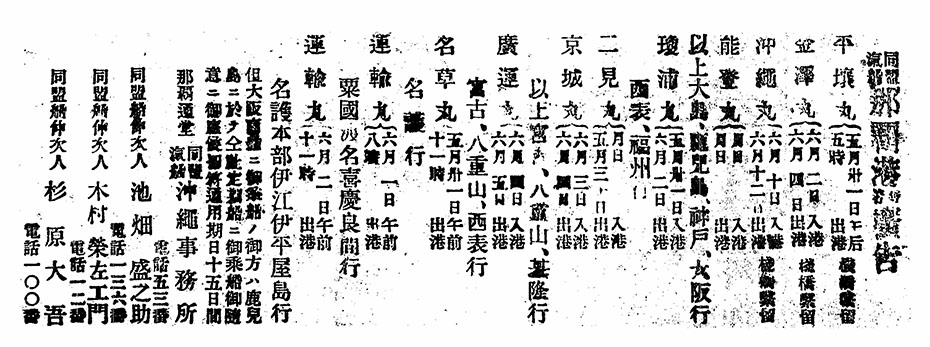 同盟汽船那覇港發着廣告
平壤丸 五月卅一日午后五時 出港 棧橋繋留
金澤丸 六月二日入港 六月四日出港 棧橋繋留
沖繩丸 六月十日入港 六月十二日出港 棧橋繋留
能登丸 月日入港 月日出港
以上大島、鹿兒島、神戸、大阪行
瓊浦丸 五月卅一日入港 六月二日出港
西表、福州行
二見丸 月日入港 五月三日出港
京城丸 六月三日入港 六月日出港
以上宮古、八重山、基隆行
廣運丸 六月四日入港 六月五日出港
宮古、八重山、西表行
名草丸 五月卅一日午前十一時 出港
名護行
運輸丸 六月一日午前八時 出港
粟國渡名喜慶良間行
運輸丸 六月二日午前十一時 出港
名護本部伊江伊平屋島行
但大阪商船ニ御乘船ノ御方ハ鹿兒
島ニ於テ仝社定期船ニ御乘船御隨
意ニ御座候切符通用期日十五日間
那覇通堂 同盟汽船 沖繩事務所
電話五三番
同盟船仲次人 池畑盛之助
電話一三六番
同盟船仲次人 木村榮左工門
電話一二番
同盟船仲次人 杉原大吾
電話一〇〇番